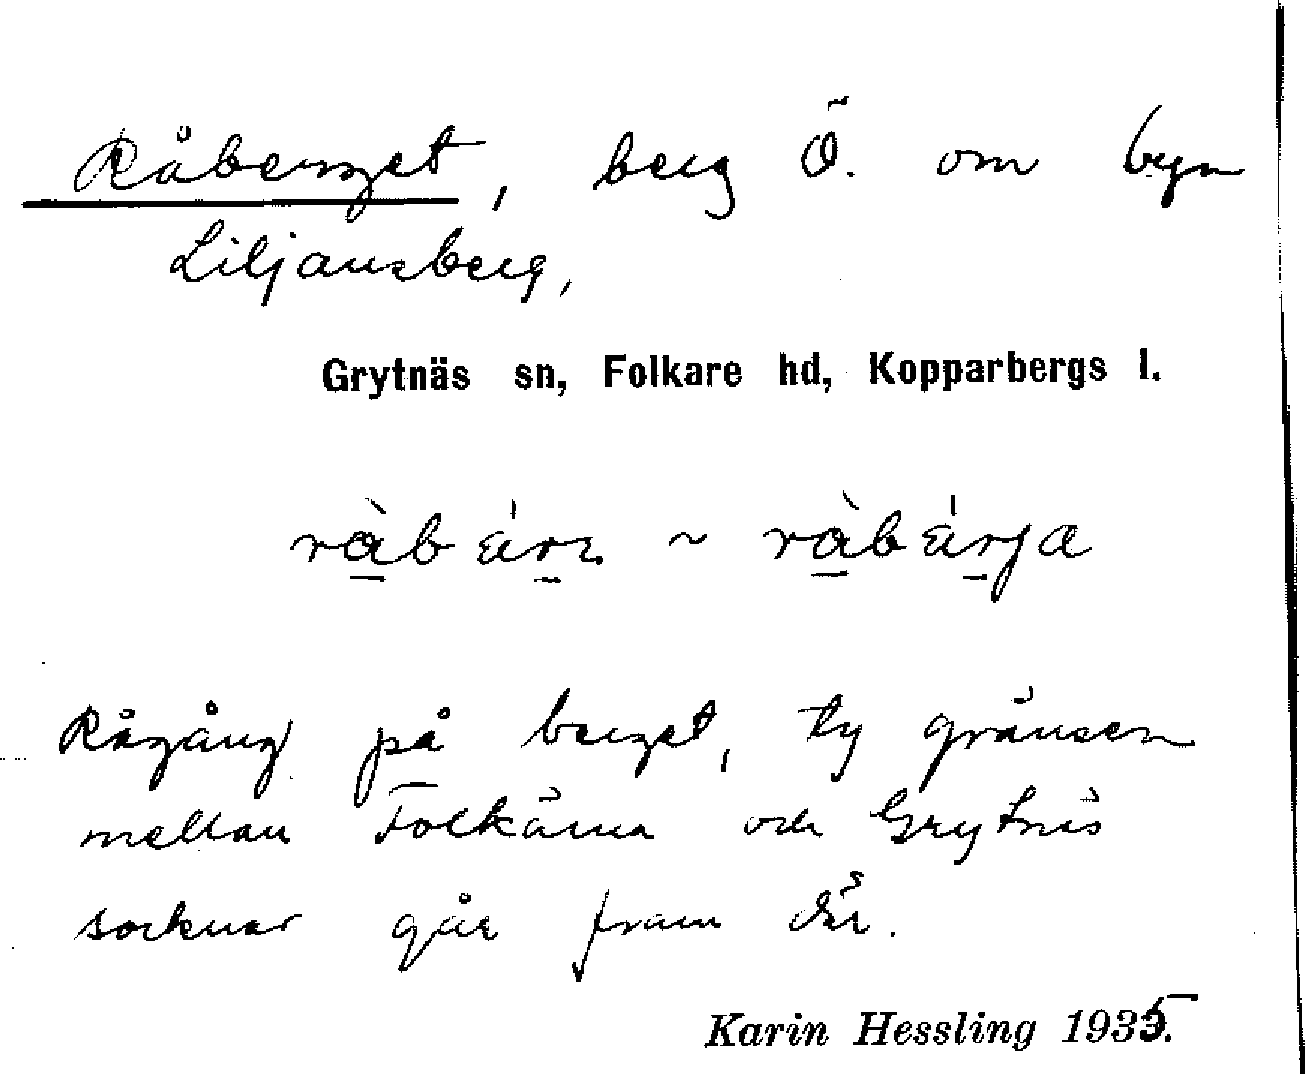 Råberget, berg Ö. om byn
Liljansberg,
Grytnäs sn, Folkare hd, Kopparbergs l.
Rågång på berget, ty gränsen
mellan Folkärna och Grytnäs
socknar går fram där.
Karin Hessling 1935.